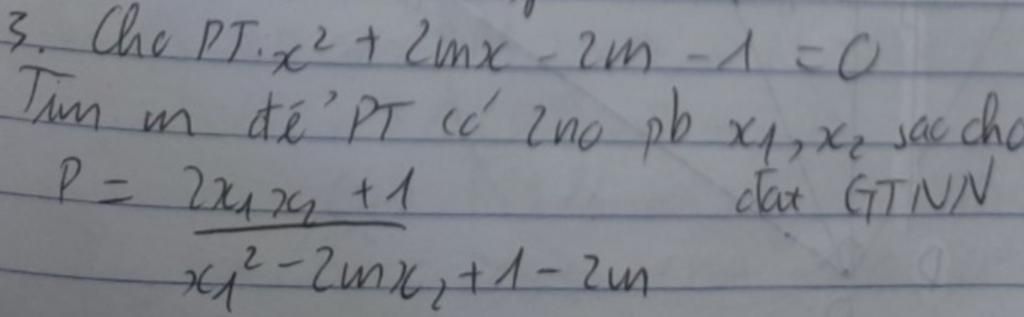 3. Cho PT: x² + 2mx - 2m - 1 = 0
Tìm m để PT có 2no pb x₁, x₂ sao cho
P = (2x₁x₂ + 1) / (x₁² - 2mx₂ + 1 - 2m) đạt GTNN